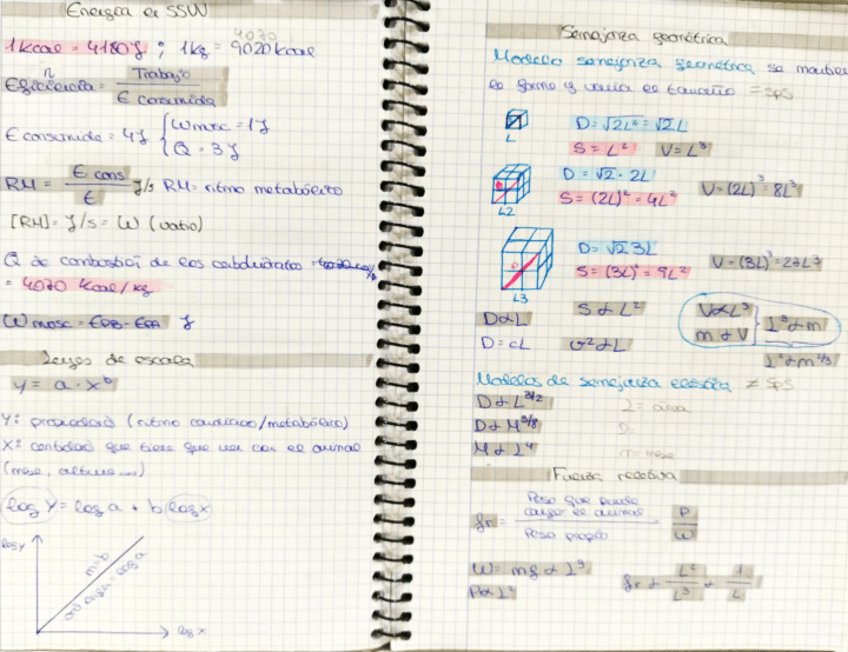 Energía en SSW
4070
1 kcal = 4180 J ; 1 kg = 9020 kcal
Eficiencia = Trabajo / E consumida
n
E consumida = 4 J { Wmosc = 1 J
Q = 3 J
RM = E cons / t J/s RM = ritmo metabólico
[RM] = J/s = W (vatio)
Q de combustió de los carbohidratos
= 4070 kcal/kg
Wmosc = EPB - EPA J
Leyes de escala
y = a · x^b
Y: propiedad (ritmo cardiaco/metabólico)
X: cantidad que tiene que ver con el animal
(masa, altura...)
log y = log a + b log x
log y
m = b
ord origen = log a
log x
Semejanza geométrica
Modelo semejanza geométrica se mantiene
la forma y varía el tamaño = sps
L
D = √2L² = √2L
S = L² V = L³
L2
D = √2 · 2L
S = (2L)² = 4L²
V = (2L)³ = 8L³
L3
D = √2 3L
S = (3L)² = 9L²
V = (3L)³ = 27L³
D α L
S α L²
V α L³
m α V } L³ α m
D = cL
L² α m^2/3
Modelos de semejanza elástica ≠ sps
D α L^3/2
D α M^3/8
M α L⁴
L = área
D:
m = masa
Fuerza relativa
fr = Peso que puede
cargar el animal / Peso propio = P / W
W = mg α L³
P α L²
fr α L² / L³ α 1 / L